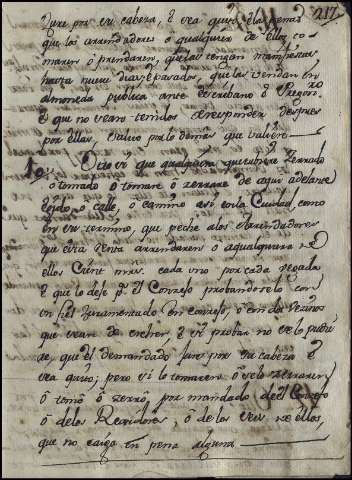 217
jure por su cabeza, è sea quito, è las penas
que los arrendadores o qualquier de ellos to-
maren ò prendaren, que las tengan manifiestas
hasta nueve dias, è pasados, que las vendan en
almoneda publica ante Escrebano ò Pregoro
è que no sean tenidos à responder despues
por ellas, salvo por lo demàs que valiere
10. Otro si que qualquier que tubiere Zerrado
ò tomado ò tomare ò zerrare de aqui adelante
Egido, ò calle, ò camino asi en la Ciudad, como
en su termino, que peche alos Arrendadores
que esta renta arrendaren o aqualquiera de
ellos Cient mrs. cada uno por cada vegada
è que lo dese pa. el Consejo probandoselo con
un fiel juramentado en consejo, ò con dos vezinos
que sean de creher, è si probar no se lo pudie
re, que el demandado jure por su cabeza è
sea quito; pero si lo tomaren ò se lo zerraren
ò tomò ò zerrò, por mandado del Consejo
ò delos Regidores, ò de los seis de ellos,
que no caiga en pena alguna